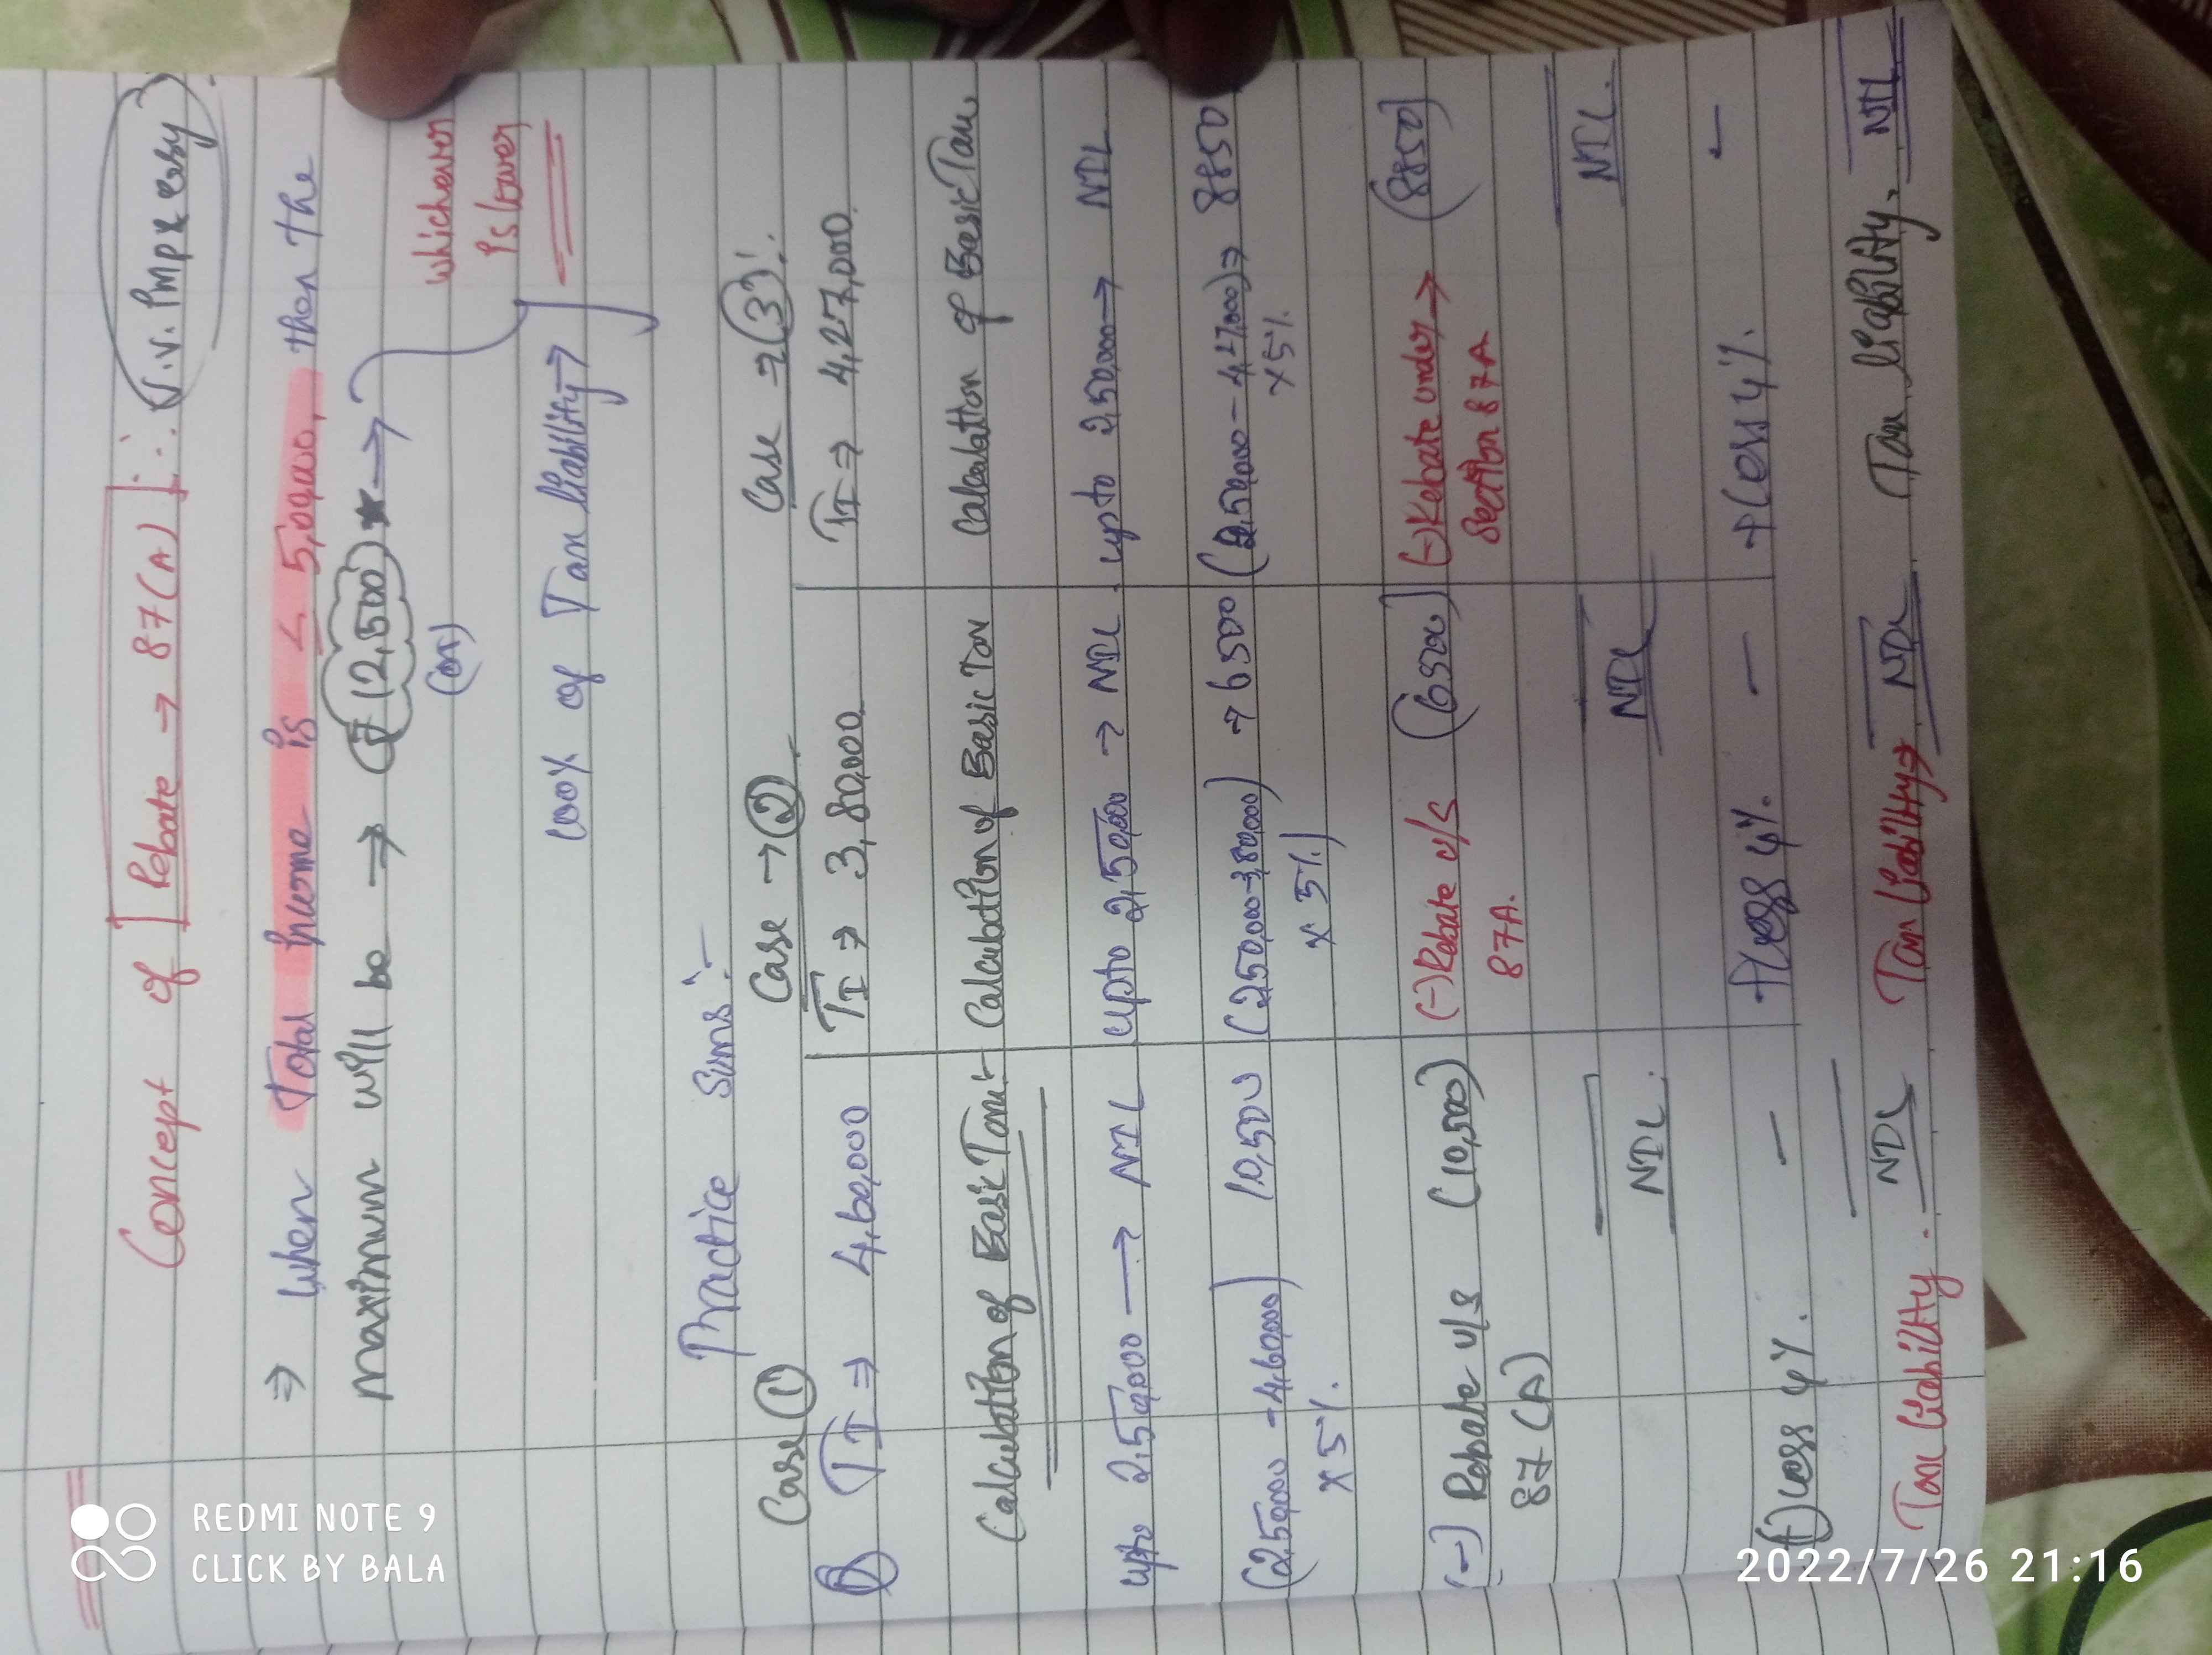 Concept of [Rebate → 87(A)] :- (V.V. Imp & easy)
⇒ When Total Income is ≤ 5,00,000, then the
maximum will be → (₹ 12,500) * →
(or)
whichever
is lower
100% of Tax liability →
Practice Sums :-
Case (1)
TI ⇒ 4,60,000
Calculation of Basic Tax :-
upto 2,50,000 → NIL
(2,50,000 - 4,60,000) 10,500
x 5%.
(-) Rebate u/s (10,500)
87 (A)
NIL.
(+) cess 4%. —
Tax liability. NIL
Case → (2)
TI ⇒ 3,80,000
Calculation of Basic Tax
upto 2,50,000 → NIL
(2,50,000-3,80,000) → 6500
x 5%
(-) Rebate u/s (6500)
87A.
NIL
+ Cess 4%. —
Tax liability → NIL
Case ⇒ (3) :-
TI ⇒ 4,27,000.
Calculation of Basic Tax
upto 2,50,000 → NIL
(2,50,000 - 4,27,000) ⇒ 8850
x 5%
(-) Rebate under → (8850)
Section 87A
NIL.
+ Cess 4%. -
Tax liability. NIL
REDMI NOTE 9
CLICK BY BALA
2022/7/26 21:16